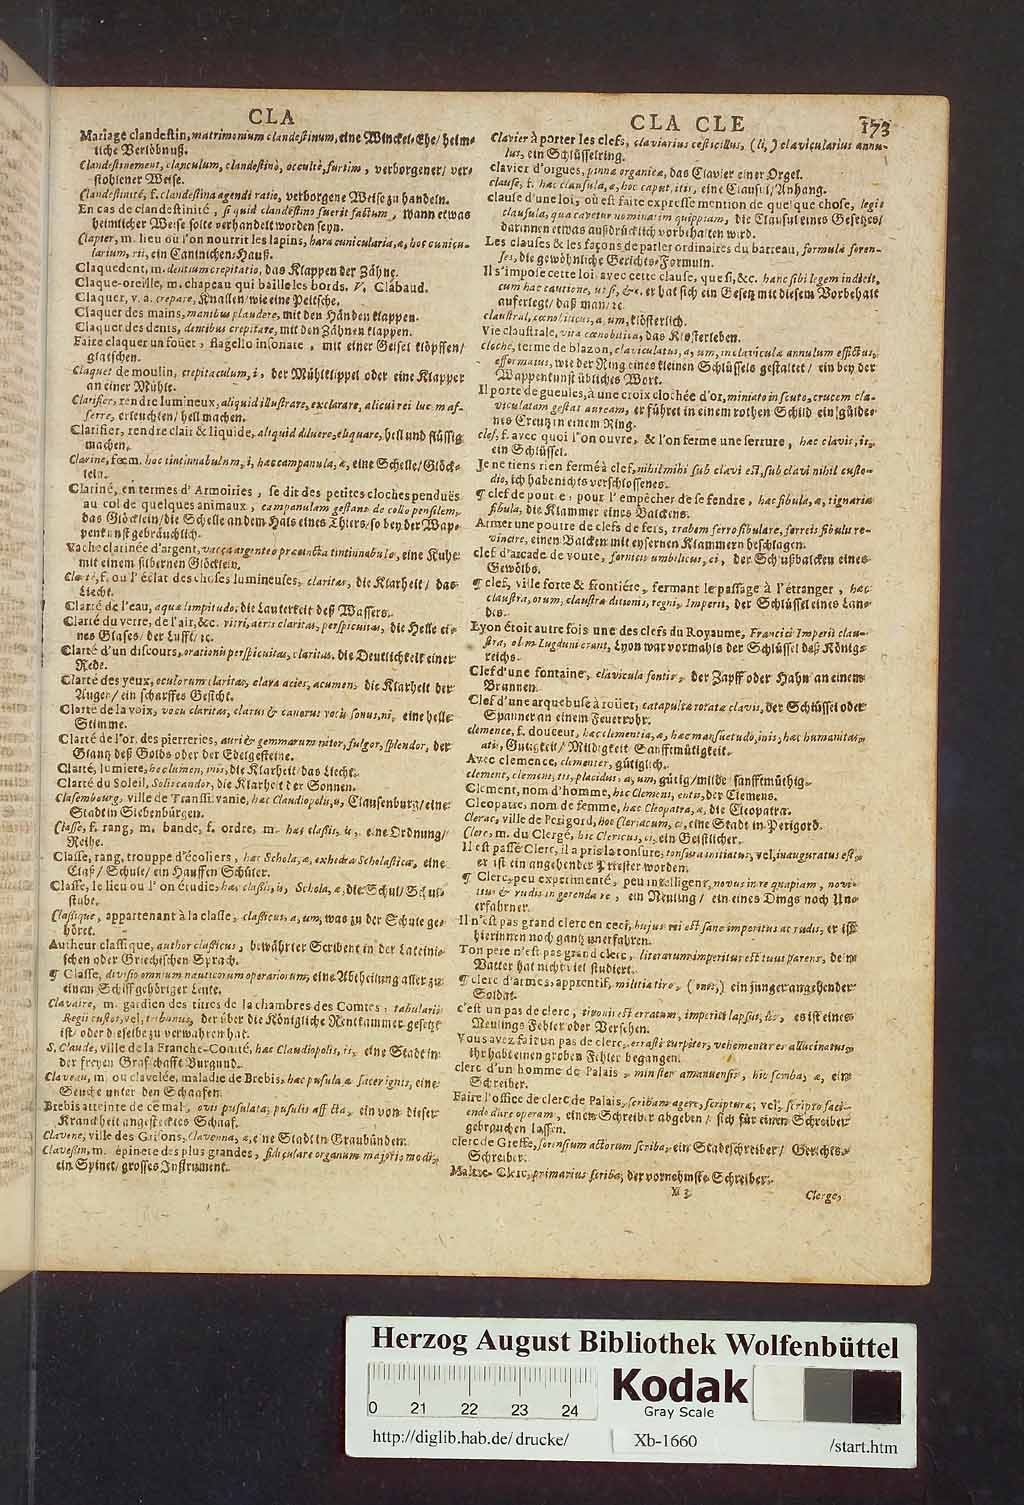 CLA
Mariage clandestin, matrimonium clandestinum, eine Winckel-Ehe/ heim-
liche Verlöbnuß.
Clandestinement, clanculum, clandestinò, occultè, furtim, verborgener/ ver-
stohlener Weise.
Clandestinité, f. clandestina agendi ratio, verborgene Weise zu handeln.
En cas de clandestinité, si quid clandestino fuerit factum, wann etwas
heimlicher Weise solte verhandelt worden seyn.
Clapier, m. lieu où l'on nourrit les lapins, hara cunicularia, æ, hoc cunicu-
larium, rii, ein Caninichen-Hauß.
Claquedent, m. dentium crepitatio, das Klappen der Zähne.
Claque-oreille, m. chapeau qui baille les bords. V. Clabaud.
Claquer, v. a. crepare, Knallen/ wie eine Peitsche.
Claquer des mains, manibus plaudere, mit den Händen klappen.
Claquer des dents, dentibus crepitare, mit den Zähnen klappen.
Faire claquer un foüet, flagello insonare, mit einer Geisel klöpffen/
glatschen.
Claquet de moulin, crepitaculum, i, der Mühlklippel oder eine Klapper
an einer Mühle.
Clarifier, rendre lumineux, aliquid illustrare, exclarare, alicui rei lucem af-
ferre, erleuchten/ hell machen.
Clarifier, rendre clair & liquide, aliquid diluere, eliquare, hell und flüssig
machen.
Clarine, fœm. hoc tintinnabulum, i, hæc campanula, æ, eine Schelle/ Glöck-
lein.
Clariné, en termes d'Armoiries, se dit des petites cloches penduës
au col de quelques animaux, campanulam gestans de collo pensilem,
das Glöcklein/ die Schelle an dem Hals eines Thiers/ so bey der Wap-
penkunst gebräuchlich.
Vache clarinée d'argent, vacca argenteo præcincta tintinnabulo, eine Kuhe
mit einem silbernen Glöcklein.
Clarté, f. ou l'éclat des choses lumineuses, claritas, die Klarheit/ das
Liecht.
Clarté de l'eau, aquæ limpitudo, die Lauterkeit deß Wassers.
Clarté du verre, de l'air, &c. vitri, aëris claritas, perspicuitas, die Helle ei-
nes Glases/ der Lufft/ ꝛc.
Clarté d'un discours, orationis perspicuitas, claritas, die Deutlichkeit einer
Rede.
Clarté des yeux, oculorum claritas, clara acies, acumen, die Klarheit der
Augen/ ein scharffes Gesicht.
Clarté de la voix, vocis claritas, clarus & canorus vocis sonus, ni, eine helle
Stimme.
Clarté de l'or, des pierreries, auri & gemmarum nitor, fulgor, splendor, der
Glantz deß Golds oder der Edelgesteine.
Clarté, lumiere, hoc lumen, inis, die Klarheit/ das Liecht.
Clarté du Soleil, Solis candor, die Klarheit der Sonnen.
Clasembourg, ville de Transsilvanie, hæc Claudiopolis, is, Clausenburg/ eine
Stadt in Siebenbürgen.
Classe, f. rang, m. bande, f. ordre, m. hæc classis, is, eine Ordnung/
Reihe.
Classe, rang, trouppe d'écoliers, hæc Schola, æ, exhedra Scholastica, eine
Claß/ Schule/ ein Hauffen Schüler.
Classe, le lieu où l'on étudie, hæc classis, is, Schola, æ, die Schul/ Schul-
stube.
Classique, appartenant à la classe, classicus, a, um, was zu der Schule ge-
höret.
Autheur classique, author classicus, bewährter Scribent in der Lateini-
schen oder Griechischen Sprach.
¶ Classe, divisio omnium nauticorum operariorum, eine Abtheilung aller zu
einem Schiff gehöriger Leute.
Clavaire, m. gardien des titres de la chambres des Comtes, tabularii
Regii custos, vel, tribunus, der über die Königliche Rentkammer gesetzt
ist/ oder dieselbe zu verwahren hat.
S. Claude, ville de la Franche-Comté, hæc Claudiopolis, is, eine Stadt in
der freyen Grafschafft Burgund.
Claveau, m. ou clavelée, maladie de Brebis, hæc pusula, æ sacer ignis, eine
Seuche unter den Schaafen.
Brebis atteinte de ce mal, ovis pusulata; pusulis affecta, ein von dieser
Kranckheit angestecktes Schaaf.
Clavene, ville des Grisons, Clavenna, æ, eine Stadt in Graubünden.
Clavessin, m. épinete des plus grandes, fidiculare organum majoris modi,
ein Spinet/ grosses Instrument.
CLA CLE 173
Clavier à porter les clefs, claviarius cesticillus, (li,) clavicularius annu-
lus, ein Schlüsselring.
clavier d'orgues, pinna organica, das Clavier einer Orgel.
clause, f. hæc clausula, æ, hoc caput, itis, eine Clausul/ Anhang.
clause d'une loi, où est faite expresse mention de quelque chose, legis
clausula, qua cavetur nominatim quippiam, die Clausul eines Gesetzes/
darinnen etwas außdrücklich vorbehalten wird.
Les clauses & les façons de parler ordinaires du barreau, formulæ foren-
ses, die gewöhnliche Gerichts-Formuln.
Il s'impose cette loi avec cette clause, que si, &c. hanc sibi legem indicit,
cum hac cautione, ut si, &c. er hat sich ein Gesetz mit diesem Vorbehalt
auferlegt/ daß man/ ꝛc.
claustral, cœnobiticus, a, um, klösterlich.
Vie claustrale, vita cœnobitica, das Klosterleben.
cloche, terme de blazon, claviculatus, a, um, in claviculæ annulum effictus,
efformatus, wie der Ring eines kleinen Schlüssels gestaltet/ ein bey der
Wappenkunst übliches Wort.
Il porte de gueules, à une croix clochée d'or, miniato in scuto, crucem cla-
viculatam gestat auream, er führet in einem rothen Schild ein gülde-
nes Creutz in einem Ring.
clef, f. avec quoi l'on ouvre, & l'on ferme une serrure, hæc clavis, is,
ein Schlüssel.
Je ne tiens rien fermé à clef, nihil mihi sub clavi est, sub clavi nihil custo-
dio, ich habe nichts verschlossenes.
¶ clef de poutre, pour l'empêcher de se fendre, hæc fibula, æ, tignaria
fibula, die Klammer eines Balckens.
Armer une poutre de clefs de fers, trabem ferro fibulare, ferreis fibulis re-
vincire, einen Balcken mit eysernen Klammern beschlagen.
clef d'arcade de voute, fornicis umbilicus, ci, der Schlußbalcken eines
Gewölbs.
¶ clef, ville forte & frontiére, fermant le passage à l'étranger, hæc
claustra, orum, claustra ditionis, regni, Imperii, der Schlüssel eines Lan-
des.
Lyon étoit autrefois une des clefs du Royaume, Francici Imperii clau-
stra, olim Lugduni erant, Lyon war vormahls der Schlüssel deß König-
reichs.
Clef d'une fontaine, clavicula fontis, der Zapff oder Hahn an einem
Brunnen.
Clef d'une arquebuse à roüet, catapultæ rotatæ clavis, der Schlüssel oder
Spanner an einem Feuerrohr.
clemence, f. douceur, hæc clementia, æ, hæc mansuetudo, inis, hæc humanitas,
atis, Gütigkeit/ Mildigkeit/ Sanfftmütigkeit.
Avec clemence, clementer, gütiglich.
clement, clemens, tis, placidus, a, um, gütig/ milde/ sanfftmühtig.
Clement, nom d'homme, hic Clemens, entis, der Clemens.
Cleopatre, nom de femme, hæc Cleopatra, æ, die Cleopatra.
Clerac, ville de Perigord, hoc Cleriacum, ci, eine Stadt in Perigord.
Clerc, m. du Clergé, hic Clericus, ci, ein Geistlicher.
Il est passé Clerc, il a pris la tonsure, tonsura initiatus, vel, inauguratus est,
er ist ein angehender Priester worden.
¶ Clerc, peu experimenté, peu intelligent, novus in re quapiam, novi-
tius & rudis in gerenda re, ein Neuling/ ein eines Dings noch Un-
erfahrner.
Il n'est pas grand clerc en ceci, hujus rei est sane imperitus ac rudis, er ist
hierinnen noch gantz unerfahren.
Ton pere n'est pas grand clerc, literarum imperitus est tuus parens, dein
Vatter hat nicht viel studiert.
¶ clerc d'armes, apprentif, militiæ tiro, (onis,) ein junger angehender
Soldat.
c'est un pas de clerc, tironis est erratum, imperiti lapsus, &c, es ist eines
Neulings Fehler oder Versehen.
Vous avez fait un pas de clerc, errasti turpiter, vehementer es allucinatus,
Ihr habt einen groben Fehler begangen.
clerc d'un homme de Palais, minister amanuensis, hic scriba, æ, ein
Schreiber.
Faire l'office de clerc de Palais, scribam agere, scripturæ, vel, scripto faci-
endo dare operam, einen Schreiber abgeben/ sich für einen Schreiber
gebrauchen lassen.
clerc de Greffe, forensium actorum scriba, ein Stadtschreiber/ Gerichts-
Schreiber.
Maître-Clerc, primarius scriba, der vornehmste Schreiber.
Clerge,
Herzog August Bibliothek Wolfenbüttel
0 21 22 23 24
Kodak
Gray Scale
http://diglib.hab.de/drucke/ Xb-1660 /start.htm